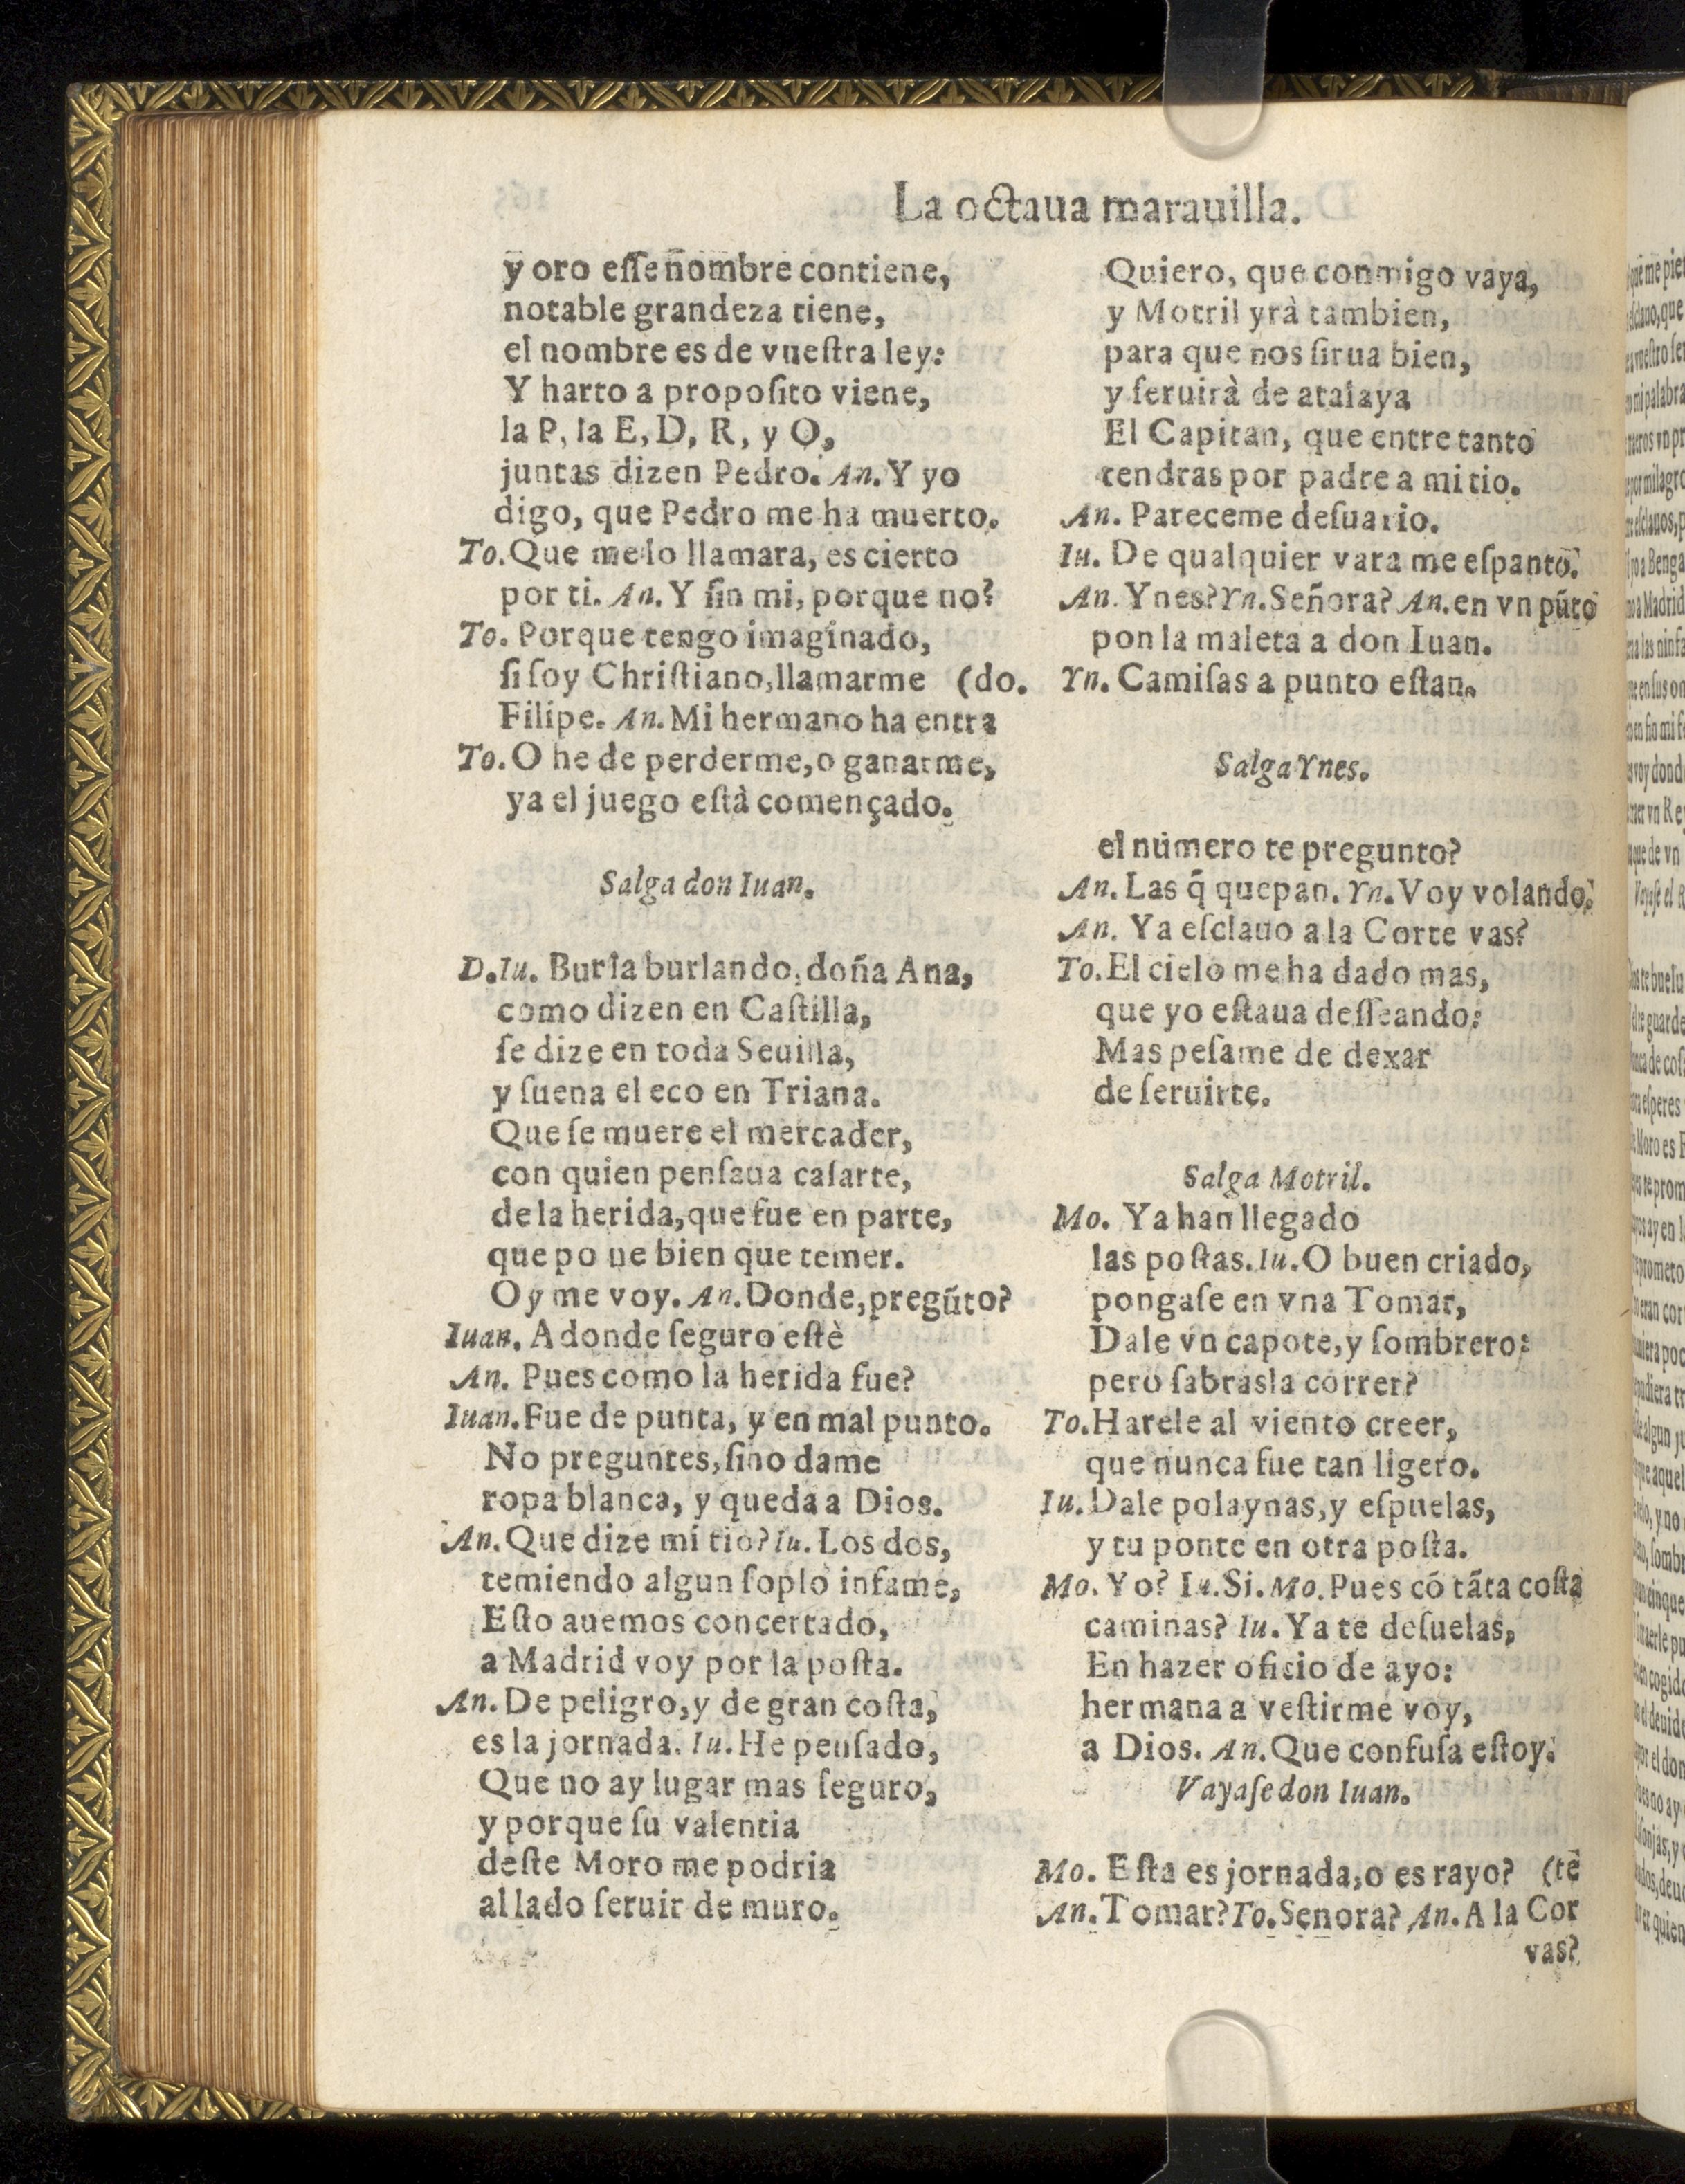 La octaua marauilla.
y oro eſſe ñombre contiene,
notable grandeza tiene,
el nombre es de vueſtra ley:
Y harto a propoſito viene,
la P, la E, D, R, y O,
juntas dizen Pedro. An. Y yo
digo, que Pedro me ha muerto.
To. Que me lo llamara, es cierto
por ti. An. Y ſin mi, porque no?
To. Porque tengo imaginado,
ſi ſoy Chriſtiano, llamarme (do.
Filipe. An. Mi hermano ha entra
To. O he de perderme, o ganarme,
ya el juego eſtà començado.
Salga don Iuan.
D. Iu. Burla burlando, doña Ana,
como dizen en Caſtilla,
ſe dize en toda Seuilla,
y ſuena el eco en Triana.
Que ſe muere el mercader,
con quien penſaua caſarte,
de la herida, que fue en parte,
que po ne bien que temer.
Oy me voy. An. Donde, pregũto?
Iuan. Adonde ſeguro eſtè
An. Pues como la herida fue?
Iuan. Fue de punta, y en mal punto.
No preguntes, ſino dame
ropa blanca, y queda a Dios.
An. Que dize mi tio? Iu. Los dos,
temiendo algun ſoplo infame,
Eſto auemos concertado,
a Madrid voy por la poſta.
An. De peligro, y de gran coſta,
es la jornada. Iu. He penſado,
Que no ay lugar mas ſeguro,
y porque ſu valentia
deſte Moro me podria
al lado ſeruir de muro.
Quiero, que conmigo vaya,
y Motril yrà tambien,
para que nos ſirua bien,
y ſeruirà de atalaya
El Capitan, que entre tanto
tendras por padre a mi tio.
An. Pareceme deſuario.
Iu. De qualquier vara me eſpanto.
An. Ynes? Yn. Señora? An. en vn pũto
pon la maleta a don Iuan.
Yn. Camiſas a punto eſtan.
Salga Ynes.
el numero te pregunto?
An. Las q̃ quepan. Yn. Voy volando.
An. Ya eſclauo a la Corte vas?
To. El cielo me ha dado mas,
que yo eſtaua deſſeando:
Mas peſame de dexar
de ſeruirte.
Salga Motril.
Mo. Ya han llegado
las poſtas. Iu. O buen criado,
pongaſe en vna Tomar,
Dale vn capote, y ſombrero:
pero ſabrasla correr?
To. Harele al viento creer,
que nunca fue tan ligero.
Iu. Dale polaynas, y eſpuelas,
y tu ponte en otra poſta.
Mo. Yo? Iu. Si. Mo. Pues cõ tãta coſta
caminas? Iu. Ya te deſuelas,
En hazer oficio de ayo:
hermana a veſtirme voy,
a Dios. An. Que confuſa eſtoy.
Vayaſe don Iuan.
Mo. Eſta es jornada, o es rayo? (te
An. Tomar? To. Senora? An. A la Cor
vas?